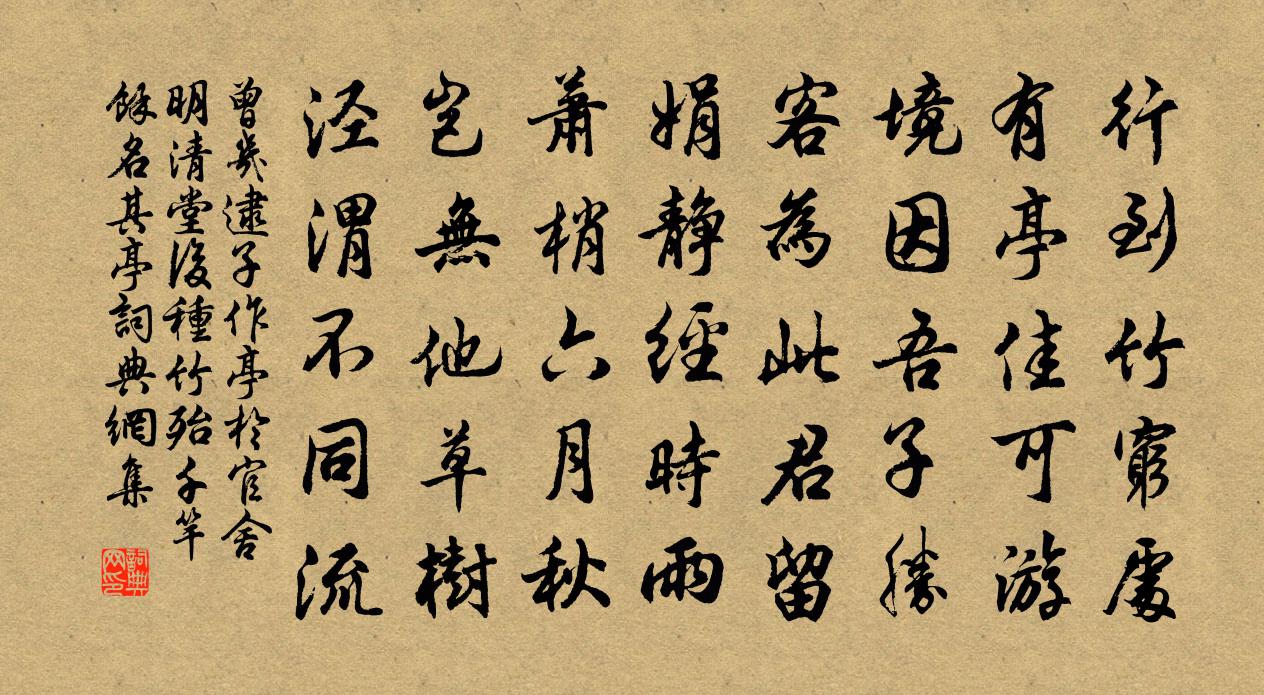 行到竹窮處
有亭佳可游
境因吾子勝
客為此君留
娟靜經時雨
蕭梢六月秋
豈無他草樹
涇渭不同流
曾幾逮子作亭於官舍
明清堂後種竹殆千竿
餘名其亭詞典網集
詞典网印